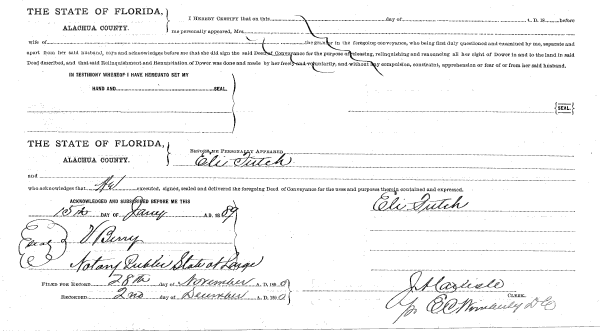 THE STATE OF FLORIDA,
ALACHUA COUNTY.
I HEREBY CERTIFY that on this day of A. D. 18 before
me personally appeared, Mrs.
wife of the grantor in the foregoing conveyance, who being first duly questioned and examined by me, separate and
apart from her said husband, says and acknowledges before me that she did sign the said Deed of Conveyance for the purpose of releasing, relinquishing and renouncing all her right of Dower in and to the land in said
Deed described, and that said Relinquishment and Renunciation of Dower was done and made by her freely and voluntarily, and without any compulsion, constraint, apprehension or fear of or from her said husband.
IN TESTIMONY WHEREOF I HAVE HEREUNTO SET MY
HAND AND SEAL.
SEAL.
THE STATE OF FLORIDA,
ALACHUA COUNTY.
BEFORE ME PERSONALLY APPEARED
Eli Futch
and
who acknowledges that he executed, signed, sealed and delivered the foregoing Deed of Conveyance for the uses and purposes therein contained and expressed.
ACKNOWLEDGED AND SUBSCRIBED BEFORE ME THIS
15th DAY OF Jany A. D. 1889
Eli Futch
Berry
Notary Public State at Large
FILED FOR RECORD 28th day of November A. D. 1890
RECORDED 2nd day of December A. D. 1890
J A Carlisle
CLERK.
pr E C Wimberly D C